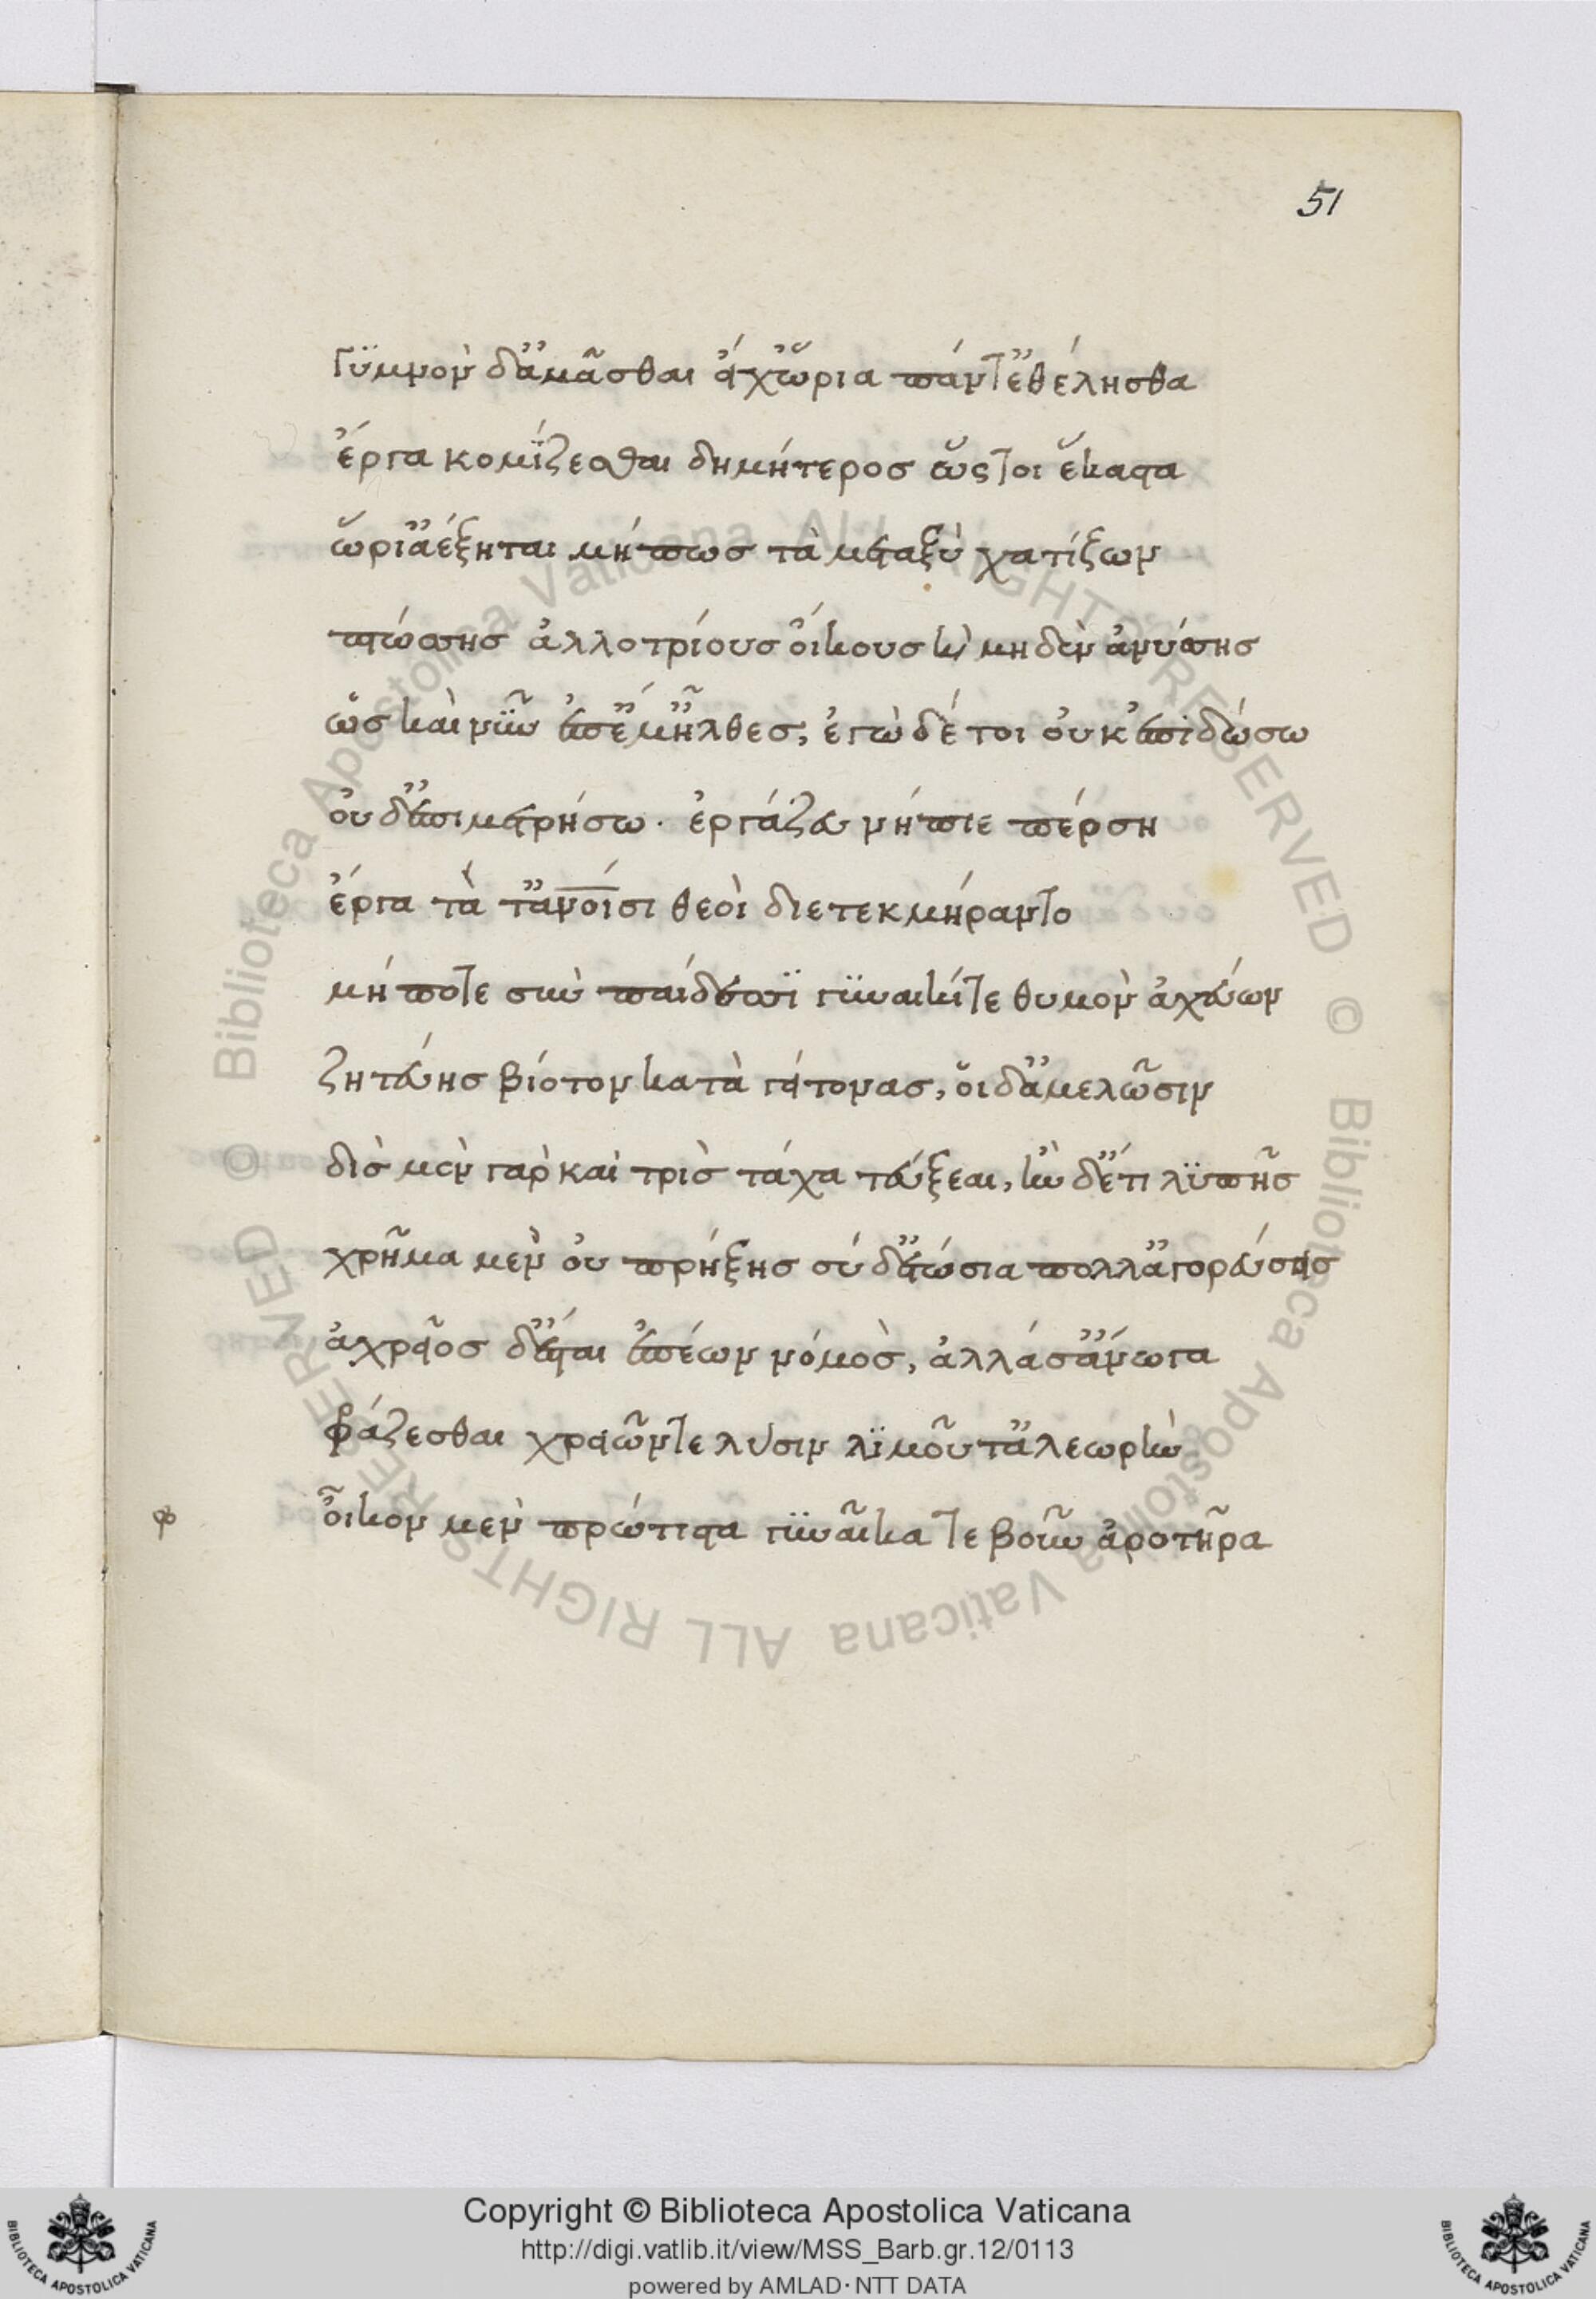 51
Γυμνὸν δ' ἀμᾶσθαι εἴ χ' ὥρια πάντ' ἐθέλησθα
ἔργα κομίζεσθαι δημήτερος ὥς τοι ἕκαστα
ὥρι' ἀέξηται μήπως τὰ μεταξὺ χατίζων
πτώσσης ἀλλοτρίους οἴκους καὶ μηδὲν ἀνύσσης
ὡς καὶ νῦν ἐπ' ἔμ' ἦλθες, ἐγὼ δέ τοι οὐκ ἐπιδώσω
οὐδ' ἐπιμετρήσω. ἐργάζευ νήπιε πέρση
ἔργα τὰ τ' ἀνοίσι θεοὶ διετεκμήραντο
μή ποτε σὺν παίδεσσι γυναικί τε θυμὸν ἀχεύων
ζητεύης βίοτον κατὰ γείτονας, οἱ δ' ἀμελῶσιν
δὶς μὲν γὰρ καὶ τρὶς τάχα τεύξεαι, ἢν δ' ἔτι λυπῆς
χρῆμα μὲν οὐ πρήξης σύ δ' ἐτώσια πολλ' ἀγορεύσεις
ἀχρεῖος δ' ἔσται ἐπέων νόμος, ἀλλά σ' ἄνωγα
φράζεσθαι χρειῶν τε λύσιν λιμοῦ τ' ἀλεωρὴν
οἶκον μὲν πρώτιστα γυναῖκα τε βοῦν ἀροτῆρα
Copyright © Biblioteca Apostolica Vaticana
http://digi.vatlib.it/view/MSS_Barb.gr.12/0113
powered by AMLAD·NTT DATA